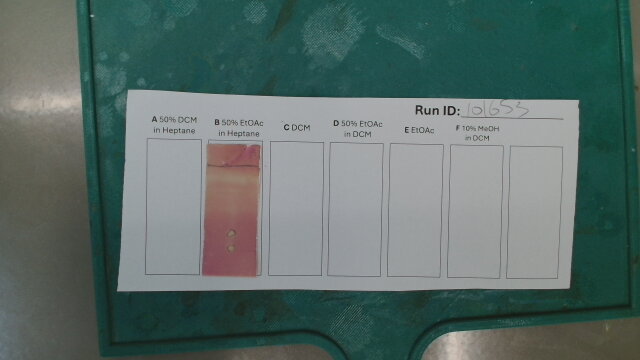 Run ID: 101653
A 50% DCM
in Heptane
B 50% EtOAc
in Heptane
C DCM
D 50% EtOAc
in DCM
E EtOAc
F 10% MeOH
in DCM